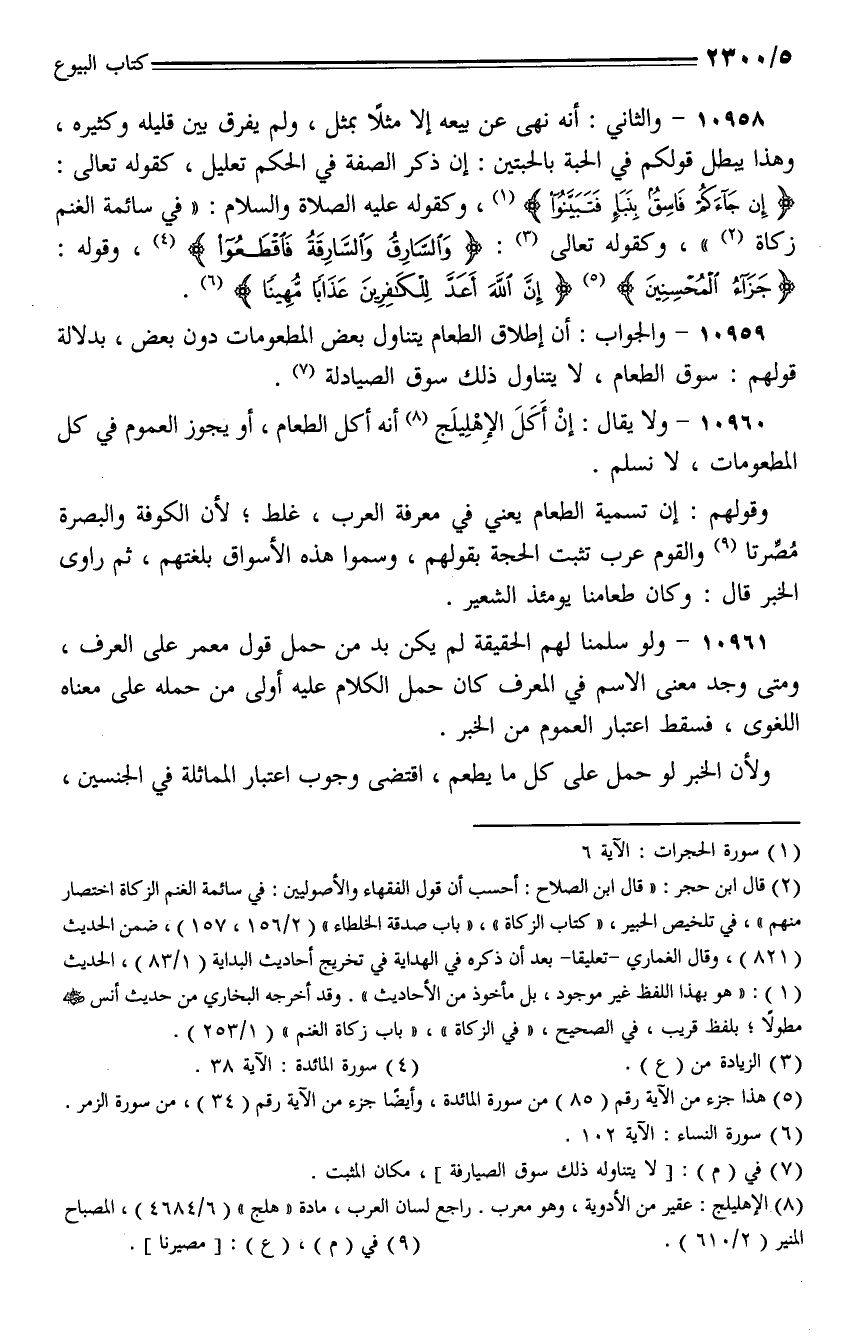 ٢٣٠٠/٥ كتاب البيوع
١٠٩٥٨ - والثاني : أنه نهى عن بيعه إلا مثلًا بمثل ، ولم يفرق بين قليله وكثيره ،
وهذا يبطل قولكم في الحبة بالحبتين : إن ذكر الصفة في الحكم تعليل ، كقوله تعالى :
﴿ إِن جَآءَكُمْ فَاسِقٌۢ بِنَبَإٍ فَتَبَيَّنُوٓا۟ ﴾ (١) ، وكقوله عليه الصلاة والسلام : « في سائمة الغنم
زكاة (٢) » ، وكقوله تعالى (٣) : ﴿ وَٱلسَّارِقُ وَٱلسَّارِقَةُ فَٱقْطَعُوٓا۟ ﴾ (٤) ، وقوله :
﴿ جَزَآءُ ٱلْمُحْسِنِينَ ﴾ (٥) ﴿ إِنَّ ٱللَّهَ أَعَدَّ لِلْكَٰفِرِينَ عَذَابًا مُّهِينًا ﴾ (٦) .
١٠٩٥٩ - والجواب : أن إطلاق الطعام يتناول بعض المطعومات دون بعض ، بدلالة
قولهم : سوق الطعام ، لا يتناول ذلك سوق الصيادلة (٧) .
١٠٩٦٠ - ولا يقال : إنْ أَكَلَ الإهْلِيلَج (٨) أنه أكل الطعام ، أو يجوز العموم في كل
المطعومات ، لا نسلم .
وقولهم : إن تسمية الطعام يعني في معرفة العرب ، غلط ؛ لأن الكوفة والبصرة
مُصِّرتا (٩) والقوم عرب تثبت الحجة بقولهم ، وسموا هذه الأسواق بلغتهم ، ثم راوى
الخبر قال : وكان طعامنا يومئذ الشعير .
١٠٩٦١ - ولو سلمنا لهم الحقيقة لم يكن بد من حمل قول معمر على العرف ،
ومتى وجد معنى الاسم في المعرف كان حمل الكلام عليه أولى من حمله على معناه
اللغوى ، فسقط اعتبار العموم من الخبر .
ولأن الخبر لو حمل على كل ما يطعم ، اقتضى وجوب اعتبار المماثلة في الجنسين ،
(١) سورة الحجرات : الآية ٦
(٢) قال ابن حجر : « قال ابن الصلاح : أحسب أن قول الفقهاء والأصوليين : في سائمة الغنم الزكاة اختصار
منهم » ، في تلخيص الحبير ، « كتاب الزكاة » ، « باب صدقة الخلطاء » ( ١٥٦/٢ ، ١٥٧ ) ، ضمن الحديث
( ٨٢١ ) ، وقال الغماري -تعليقا- بعد أن ذكره في الهداية في تخريج أحاديث البداية ( ٨٣/١ ) ، الحديث
( ١ ) : « هو بهذا اللفظ غير موجود ، بل مأخوذ من الأحاديث » . وقد أخرجه البخاري من حديث أنس ﷺ
مطولًا ؛ بلفظ قريب ، في الصحيح ، « في الزكاة » ، « باب زكاة الغنم » ( ٢٥٣/١ ) .
(٣) الزيادة من ( ع ) . (٤) سورة المائدة : الآية ٣٨ .
(٥) هذا جزء من الآية رقم ( ٨٥ ) من سورة المائدة ، وأيضًا جزء من الآية رقم ( ٣٤ ) ، من سورة الزمر .
(٦) سورة النساء : الآية ١٠٢ .
(٧) في ( م ) : [ لا يتناوله ذلك سوق الصيارفة ] ، مكان المثبت .
(٨) الإهليلج : عقير من الأدوية ، وهو معرب . راجع لسان العرب ، مادة « هلج » ( ٤٦٨٤/٦ ) ، المصباح
المنير ( ٦١٠/٢ ) . (٩) في ( م ) ، ( ع ) : [ مصيرنا ] .